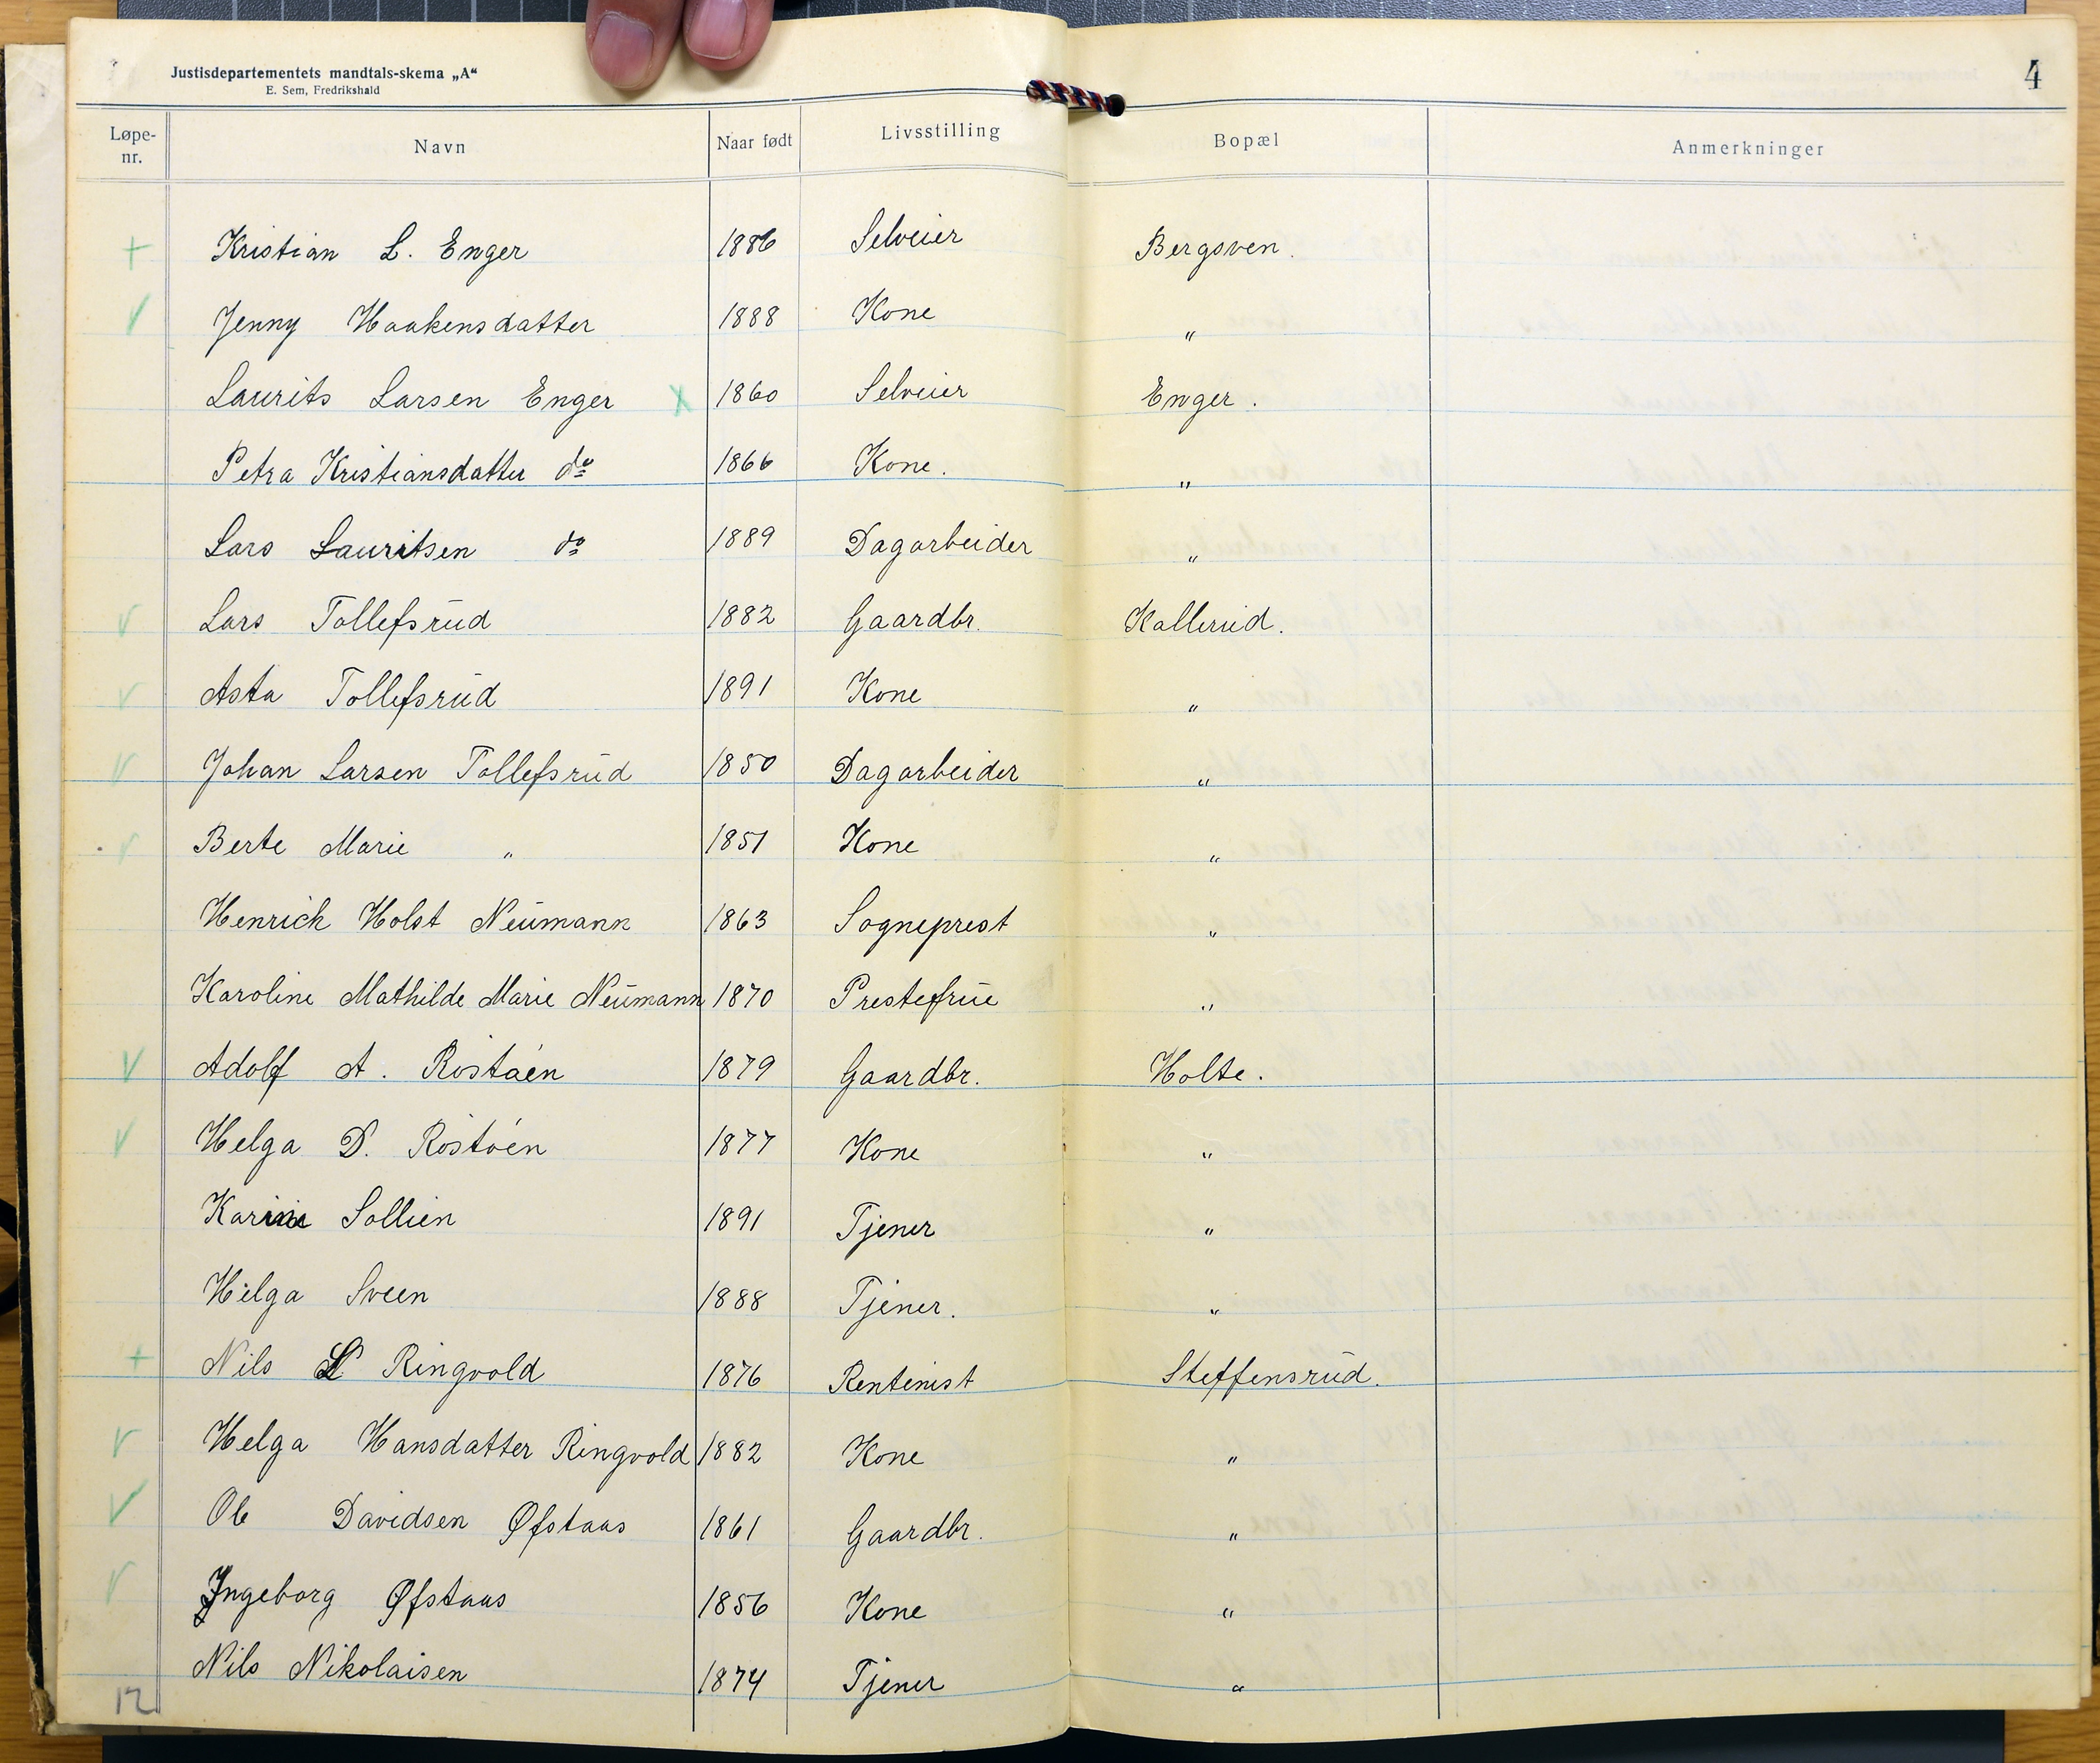 Justisdepartementets mandtals-skema „A“
E. Sem, Fredrikshald
4
Løpe-nr. Navn Naar født Livsstilling Bopæl Anmerkninger
+ Kristian L. Enger 1886 Selveier Bergsven.
√ Jenny Haakensdatter 1888 Kone "
Laurits Larsen Enger x 1860 Selveier Enger.
Petra Kristiansdatter do 1866 Kone. "
Lars Lauritsen do 1889 Dagarbeider "
√ Lars Tollefsrud 1882 Gaardbr. Kallerud.
√ Asta Tollefsrud 1891 Kone "
√ Johan Larsen Tollefsrud 1850 Dagarbeider "
√ Berte Marie " 1851 Kone "
Henrich Holst Neumann 1863 Sogneprest "
Karoline Mathilde Marie Neumann 1870 Prestefrue "
√ Adolf A. Rostøen 1879 Gaardbr. Holte.
√ Helga D. Rostøen 1877 Kone "
Karine Sollien 1891 Tjener "
Helga Sveen 1888 Tjener. "
+ Nils L Ringvold 1876 Rentenist Steffensrud.
√ Helga Hansdatter Ringvold 1882 Kone "
√ Ole Davidsen Øfstaas 1861 Gaardbr. "
√ Ingeborg Øfstaas 1856 Kone "
Nils Nikolaisen 1874 Tjener "
12